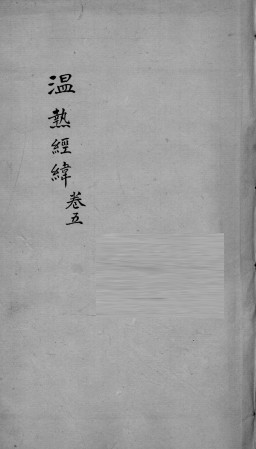 溫熱經緯
卷五